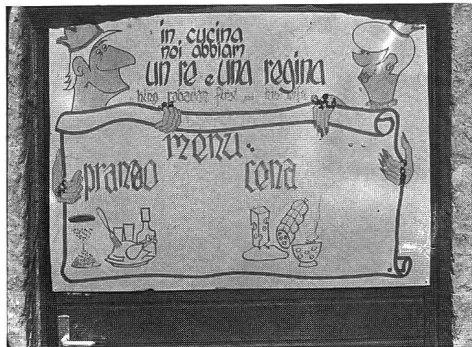 in cucina
noi abbiam
un re e una regina
king
menu:
pranzo cena